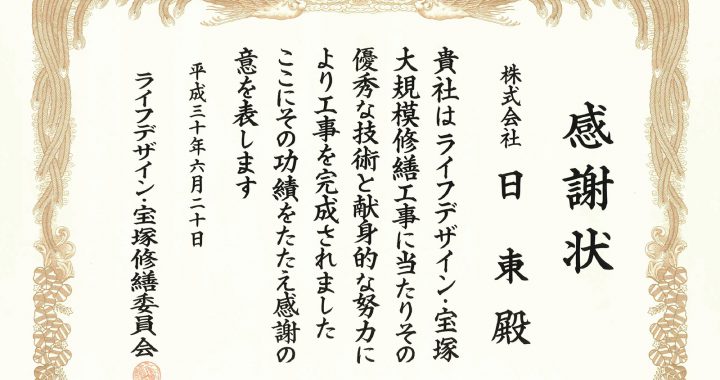 感謝状
株式会社 日東殿
貴社はライフデザイン・宝塚
大規模修繕工事に当たりその
優秀な技術と献身的な努力に
より工事を完成されました
ここにその功績をたたえ感謝の
意を表します
平成三十年六月二十日
ライフデザイン・宝塚修繕委員会